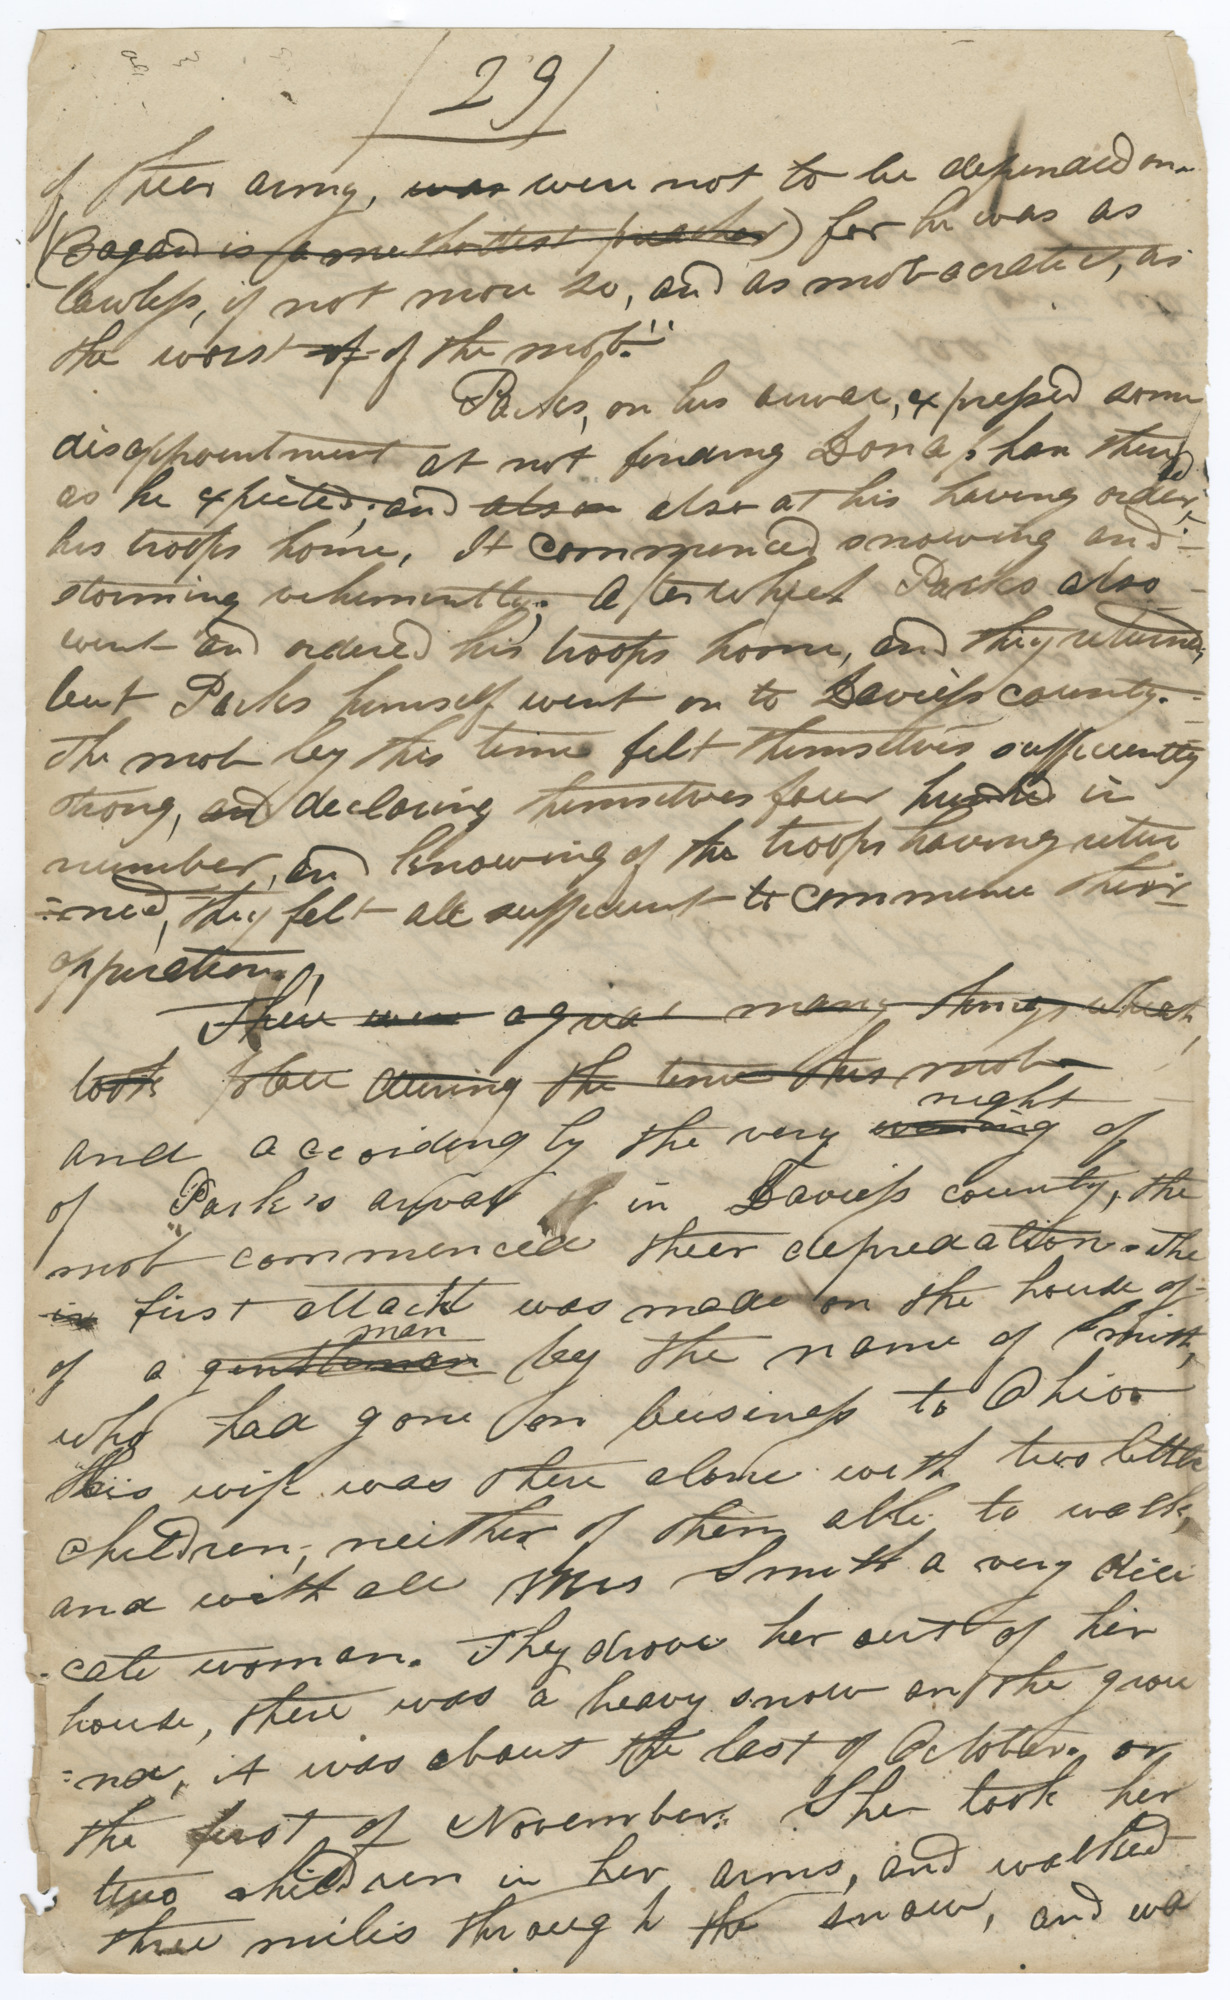 29
of their army, was were not to be depended on.
(Bogard is a methodest preacher) for he was as
lawless, if not more so, and as mobocratic, as
the worst of of the mob."
Parks, on his arival, expressed some
disappointment at not finding Doniphan there
as he expected; and also also at his having ordered
his troops home, It commenced snowing and
storming vehemently; after which Parks also
went and ordered his troops home, and they returned,
but Parks himself went on to Daviess county.
The mob by this time felt themselves sufficiently
strong, and declaring themselves four hundred in
number, and knowing of the troops having retur
=ned, they felt all sufficient to commence their
opperation.
There were a great many things which
took place during the time this mob
and accordingly the very evening night of
of Park's arival in Daviess county, the
mob commenced their depredation. The
in first attack was made on the house of
of a gentleman man by the name of Smith,
who had gone on business to Ohio
His wife was there alone with two little
children, neither of them able to walk,
and with all Mrs Smith a very deli
cate woman. They drove her out of her
house, there was a heavy snow on the grou
=nd, it was about the last of October or
the first of November. She took her
two children in her arms, and walked
three miles through the snow, and wa